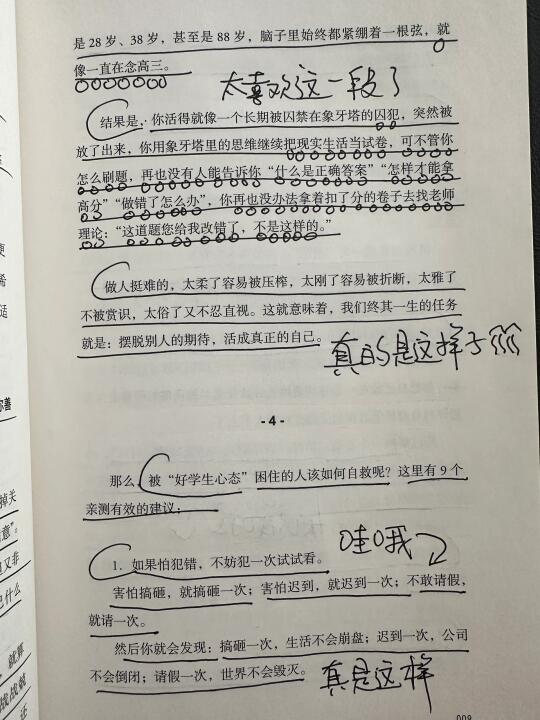 是28岁、38岁，甚至是88岁，脑子里始终都紧绷着一根弦，就
像一直在念高三。
太喜欢这一段了
结果是，你活得就像一个长期被囚禁在象牙塔的囚犯，突然被
放了出来，你用象牙塔里的思维继续把现实生活当试卷，可不管你
怎么刷题，再也没有人能告诉你“什么是正确答案”“怎样才能拿
高分”“做错了怎么办”，你再也没办法拿着扣了分的卷子去找老师
理论：“这道题您给我改错了，不是这样的。”
做人挺难的，太柔了容易被压榨，太刚了容易被折断，太雅了
不被赏识，太俗了又不忍直视。这就意味着，我们终其一生的任务
就是：摆脱别人的期待，活成真正的自己。
真的是这样子
- 4 -
那么，被“好学生心态”困住的人该如何自救呢？这里有9个
亲测有效的建议：
哇哦
1. 如果怕犯错，不妨犯一次试试看。
害怕搞砸，就搞砸一次；害怕迟到，就迟到一次；不敢请假，
就请一次。
然后你就会发现：搞砸一次，生活不会崩盘；迟到一次，公司
不会倒闭；请假一次，世界不会毁灭。
真是这样
009
掉关
意”。
又非
什么
就算
战战兢
还